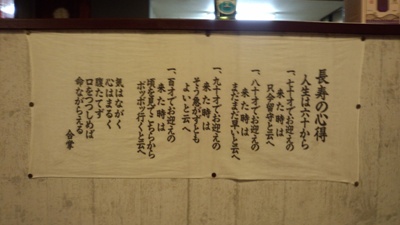 長寿の心得
人生は六十から
一、七十才でお迎えの
来た時は
只今留守と云へ
一、八十才でお迎えの
来た時は
まだまだ早いと云へ
一、九十才でお迎えの
来た時は
そう急がずとも
よいと云へ
一、百才でお迎えの
来た時は
頃を見てこちらから
ボツボツ行くと云へ
気はながく
心はまるく
腹たてず
口をつつしめば
命ながらえる
合掌